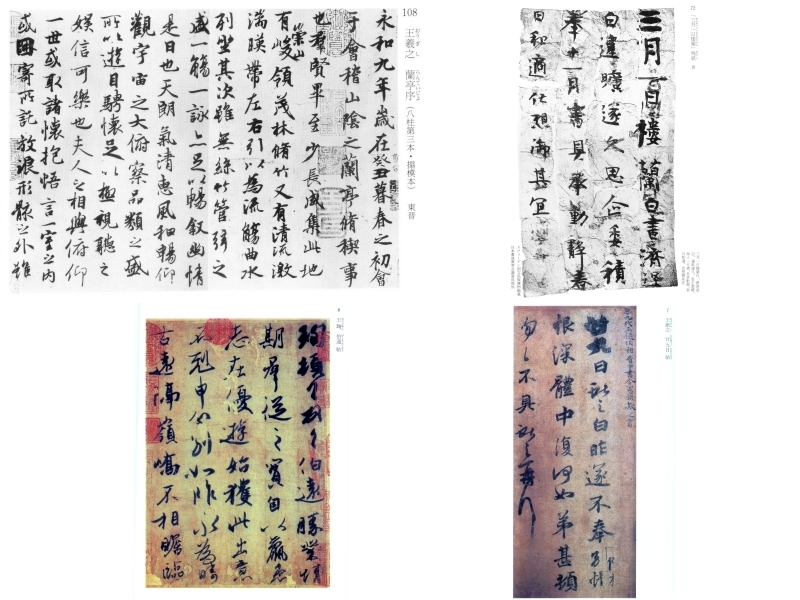 108 王羲之 蘭亭序(八柱第三本・搨模本) 東晋
永和九年歳在癸丑暮春之初會
于會稽山陰之蘭亭脩稧事
也羣賢畢至少長咸集此地
有崇山峻領茂林脩竹又有清流激
湍暎帶左右引以為流觴曲水
列坐其次雖無絲竹管弦之
盛一觴一詠亦足以暢叙幽情
是日也天朗氣清惠風和暢仰
觀宇宙之大俯察品類之盛
所以遊目騁懷足以極視聽之
娛信可樂也夫人之相與俯仰
一世或取諸懷抱悟言一室之內
或因寄所託放浪形骸之外雖
三月一日樓蘭白書濟逞
白違曠遂久思企委積
奉十一月書具承動靜春
日和適伏想御其宜
珣頓首頓首伯遠勝業情
期羣從之寶自以羸患
志在優遊始獲此出意
不剋申分別如昨永為疇
古遠隔嶺嶠不相瞻臨
廿九日獻之白昨遂不奉別悵
恨深體中復何如弟甚頓
匆匆不具獻之再拜